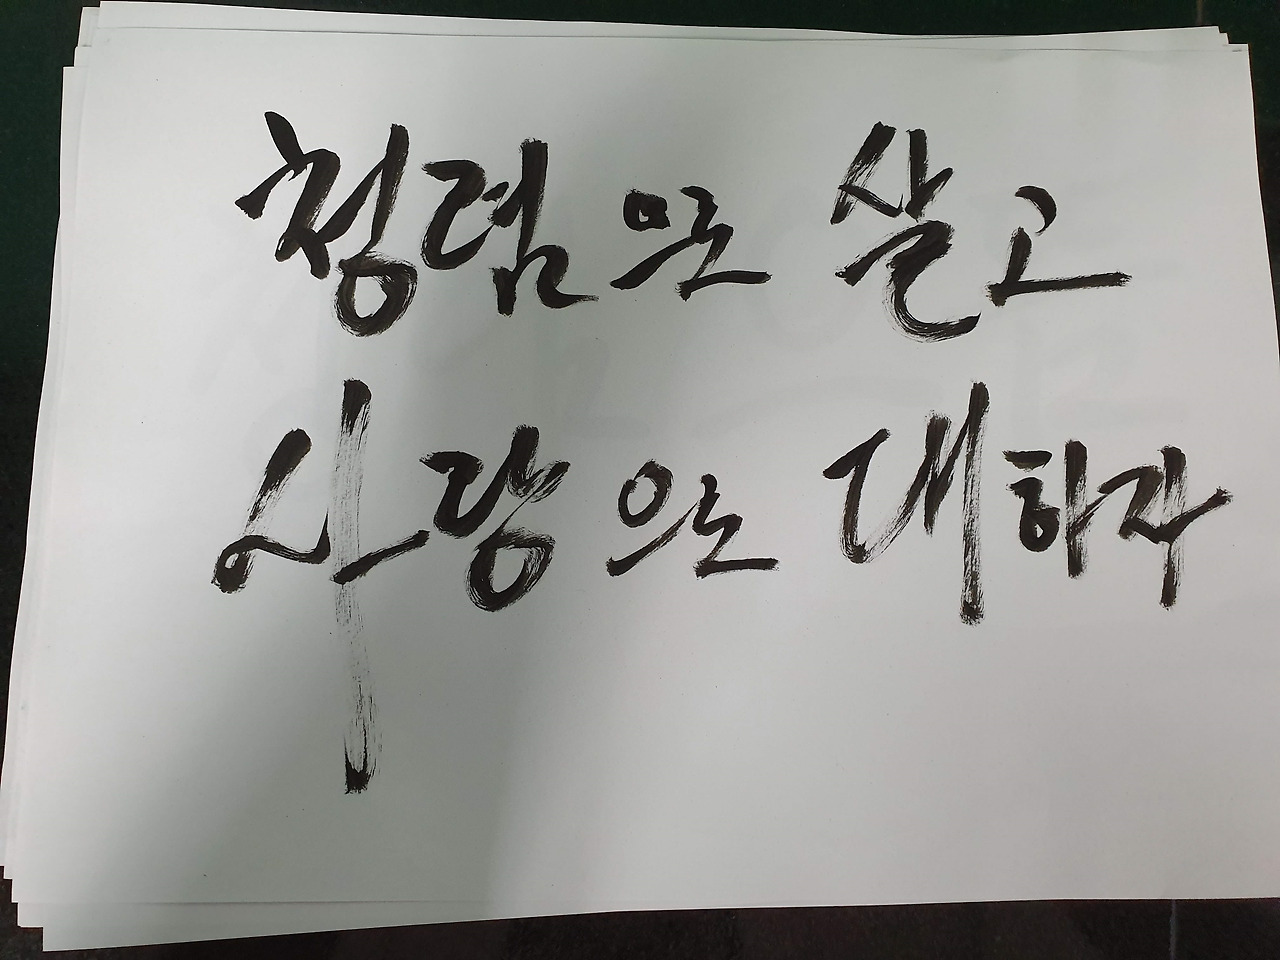 청렴으로 살고
사랑으로 대하자